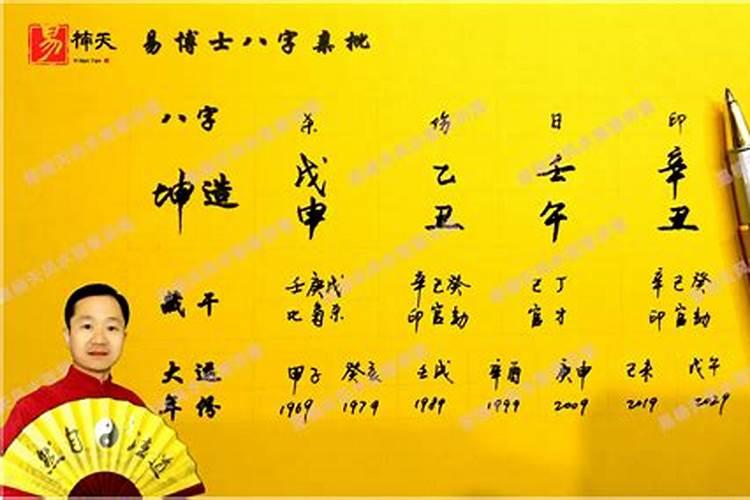 易 楠天 易博士八字桑批
八字 杀 伤 日 印
坤造 戊 乙 壬 辛
申 丑 午 丑
藏干 壬庚戊 辛己癸 己丁 辛己癸
比枭杀 印官劫 官才 印官劫
大运 甲子 癸亥 壬戌 辛酉 庚申 己未 戊午
年份 1969 1979 1989 1999 2009 2019 2029
然自法道